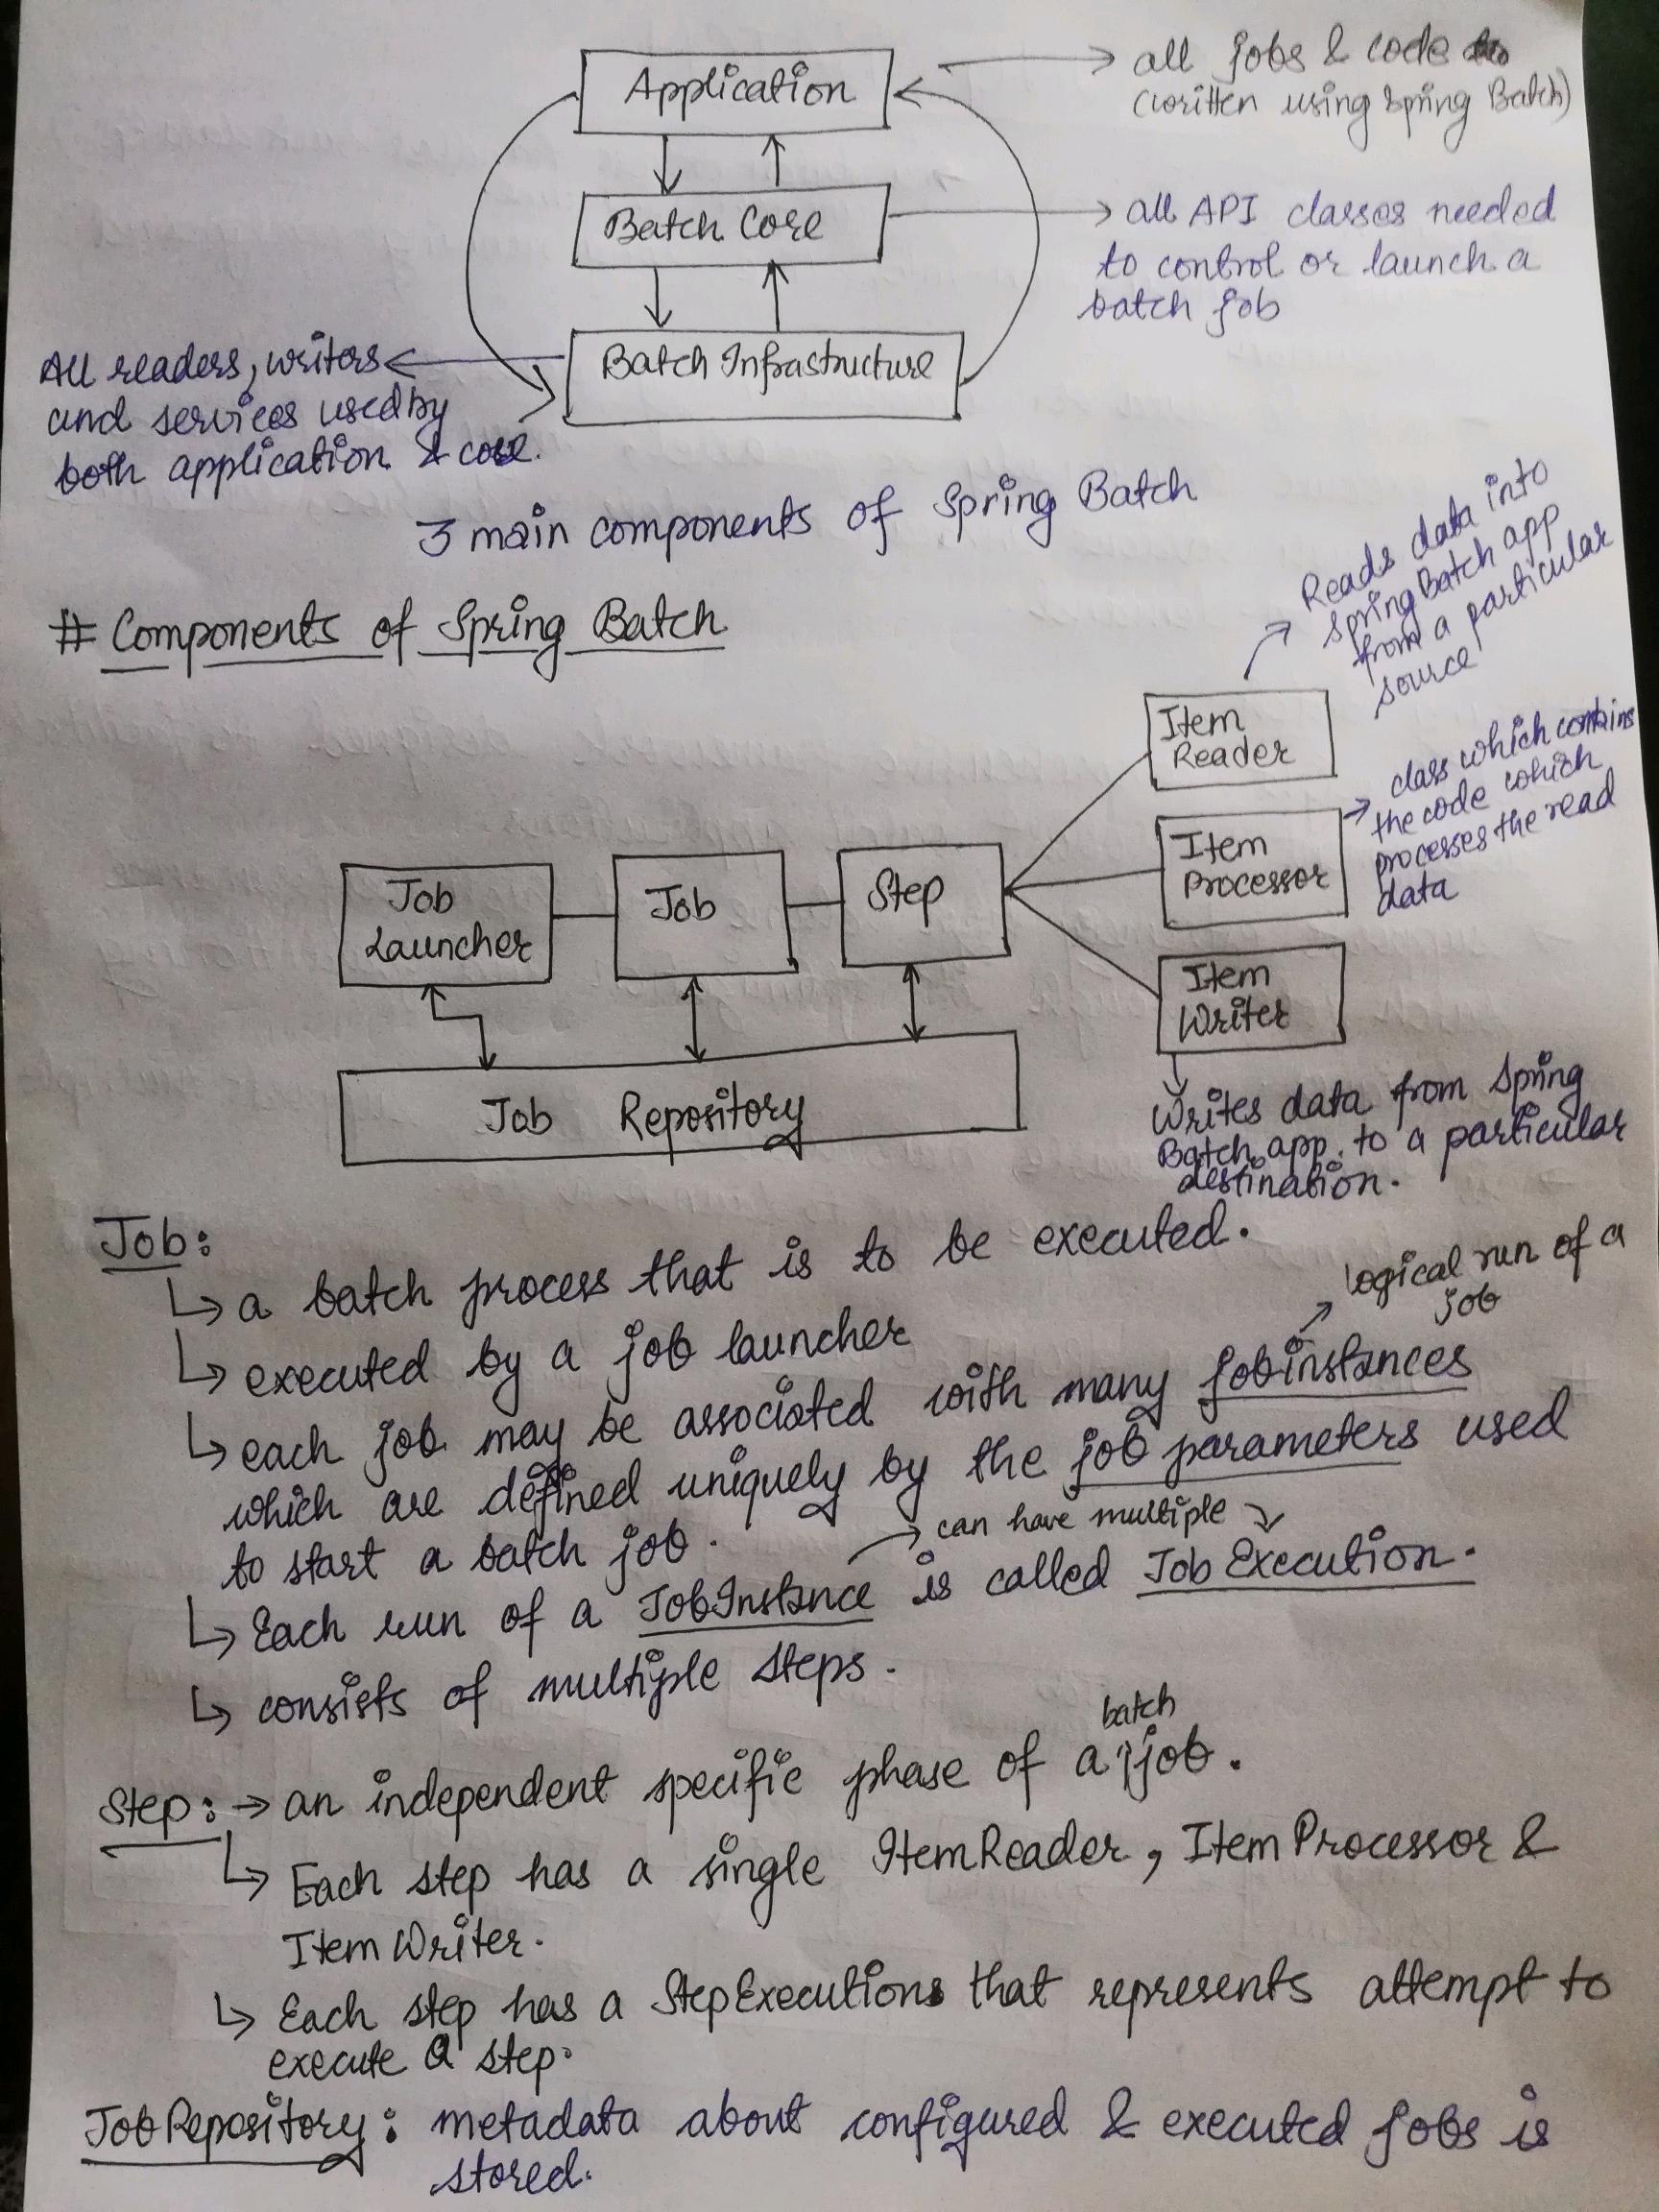 Application
all jobs & code
(written using Spring Batch)
Batch Core
all API classes needed
to control or launch a
batch job
Batch Infrastructure
All readers, writers
and services used by
both application & core.
3 main components of Spring Batch
# Components of Spring Batch
Reads data into
Spring Batch app
from a particular
source
Item
Reader
class which contains
the code which
processes the read
data
Item
Processor
Job
Launcher
Job
Step
Item
Writer
Job Repository
Writes data from Spring
Batch app. to a particular
destination.
Job:
↳ a batch process that is to be executed.
↳ executed by a job launcher
logical run of a
job
↳ each job may be associated with many jobinstances
which are defined uniquely by the job parameters used
to start a batch job.
can have multiple
↳ Each run of a JobInstance is called Job Execution.
↳ consists of multiple steps.
batch
Step: → an independent specific phase of a job.
↳ Each step has a single ItemReader, ItemProcessor &
ItemWriter.
↳ Each step has a StepExecutions that represents attempt to
execute a step.
JobRepository: metadata about configured & executed jobs is
stored.